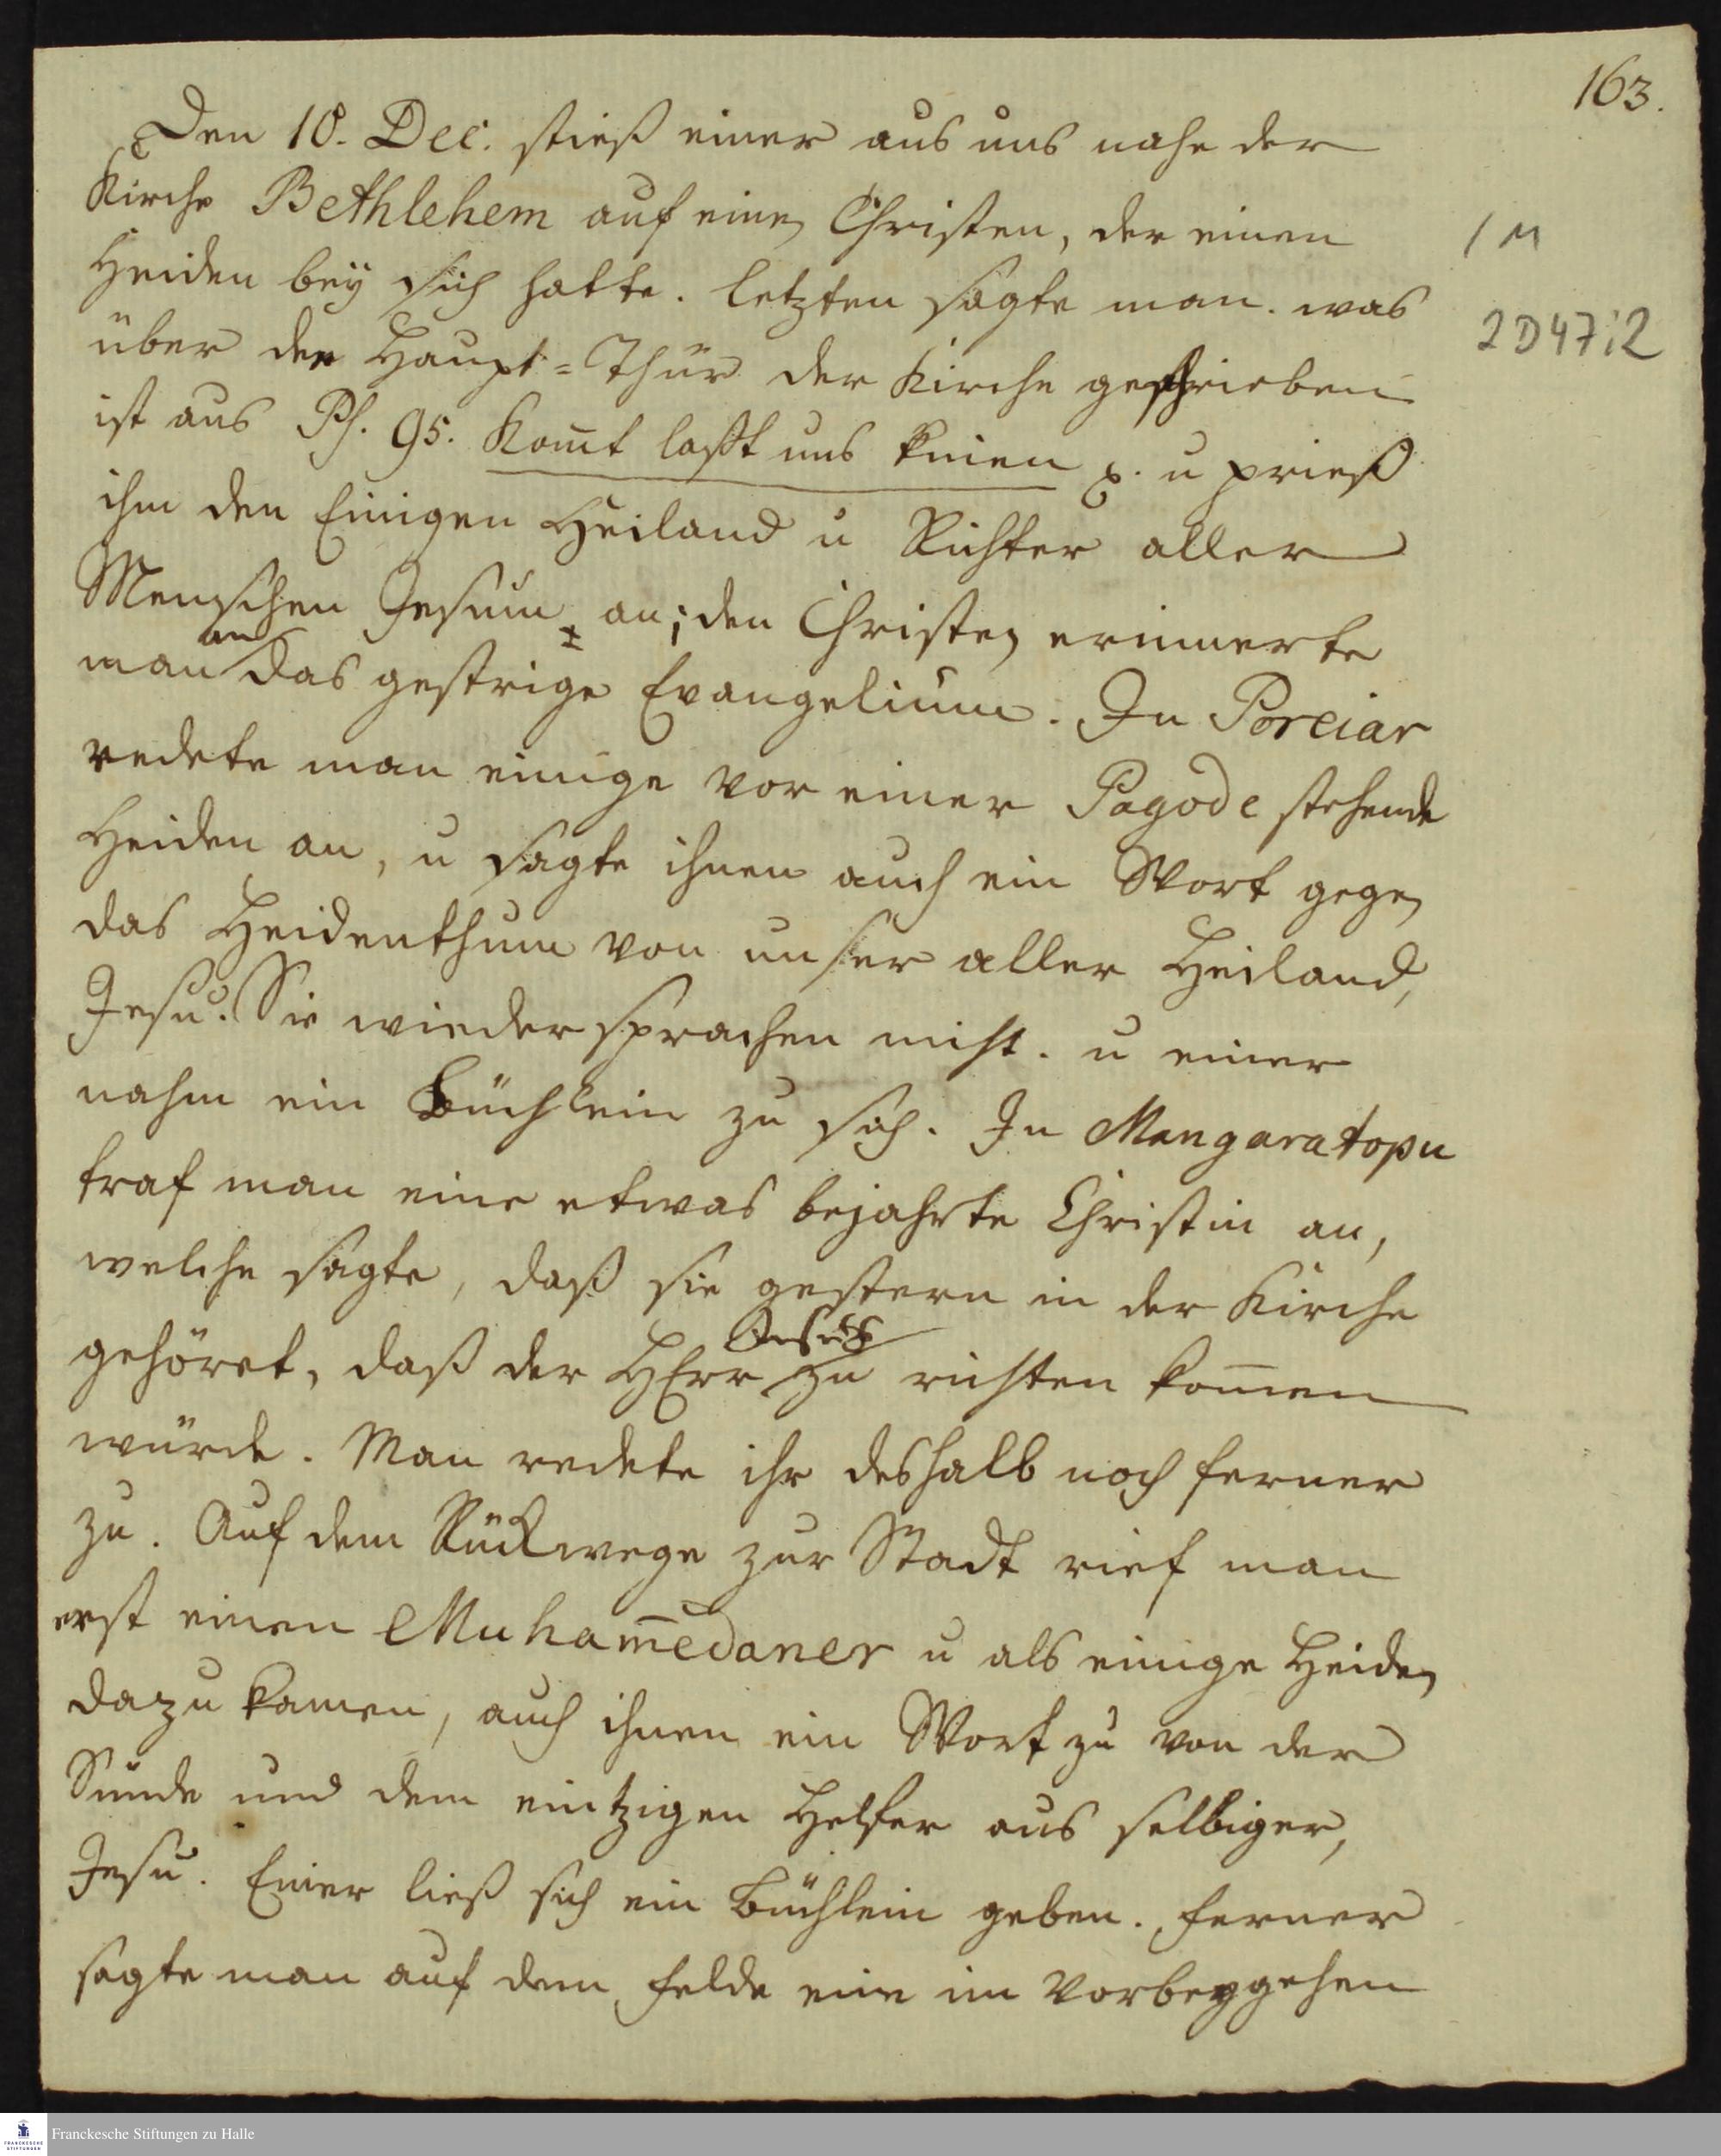 163.
Den 10. Dec. stieß einer aus uns nahe der
Kirche Bethlehem auf einen Christen, der einen
1 M
Heiden bey sich hatte. Letzten sagte man. was
2 D 47:2
über der Haupt=Thür der Kirche geschrieben
ist aus Ps. 95. Kom̅t laßt uns knien p. u prieß
ihm den Einigen Heiland u Richter aller
Menschen Jesum an; den Christen erinnerte
an
man das gestrige Evangelium. In Poreiar
redete man einige vor einer Pagode stehende
Heiden an, u sagte ihnen auch ein Wort gegen
das Heidenthum von unser aller Heiland,
Jesu. Sie wiedersprachen nicht. u einer
nahm ein Büchlein zu sich. In Mangaratopu
traf man eine etwas bejahrte Christin an,
welche sagte, daß sie gestern in der Kirche
Jesus
gehöret, daß der HErr zu richten kom̅en
würde. Man redete ihr deshalb noch ferner
zu. Auf dem Rückwege zur Stadt rief man
erst einen Muham̅edaner u als einige Heiden
dazu kamen, auch ihnen ein Wort zu von der
Sünde und dem eintzigen Helfer aus selbiger,
Jesu. Einer ließ sich ein Büchlein geben. Ferner
sagte man auf dem Felde eine im Vorbeygehen
Franckesche Stiftungen zu Halle
FRANCKESCHE
STIFTUNGEN